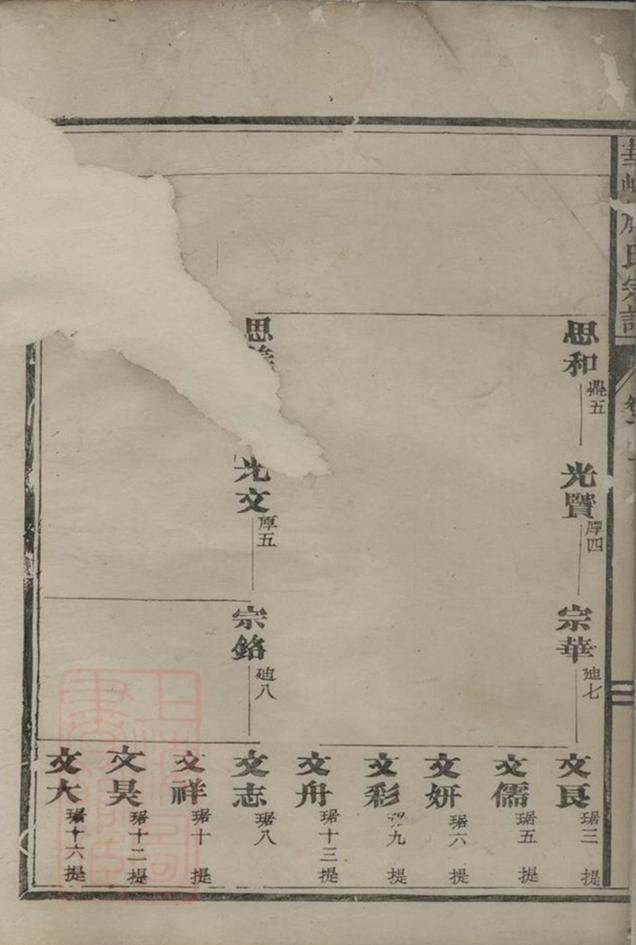 氏宗譜
思和 鼎五
光贒 厚四
宗華 廸七
文良 琚三 提
文儒 琚五 提
文妍 琚六 提
文彩 九 提
文舟 琚十三 提
思
光文 厚五
宗銘 廸八
文志 琚八
文祥 琚十 提
文昊 琚十二 提
文大 琚十六 提